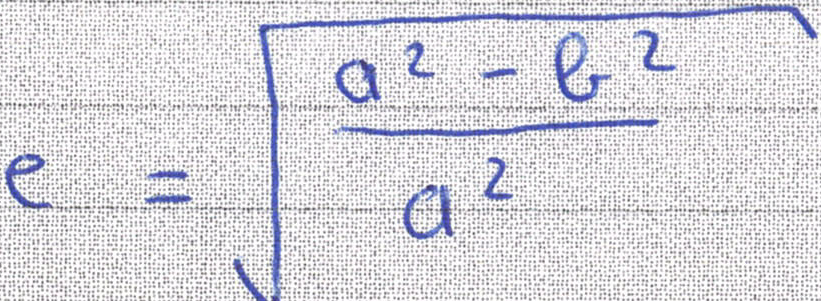 e = √((a² - b²)/a²)